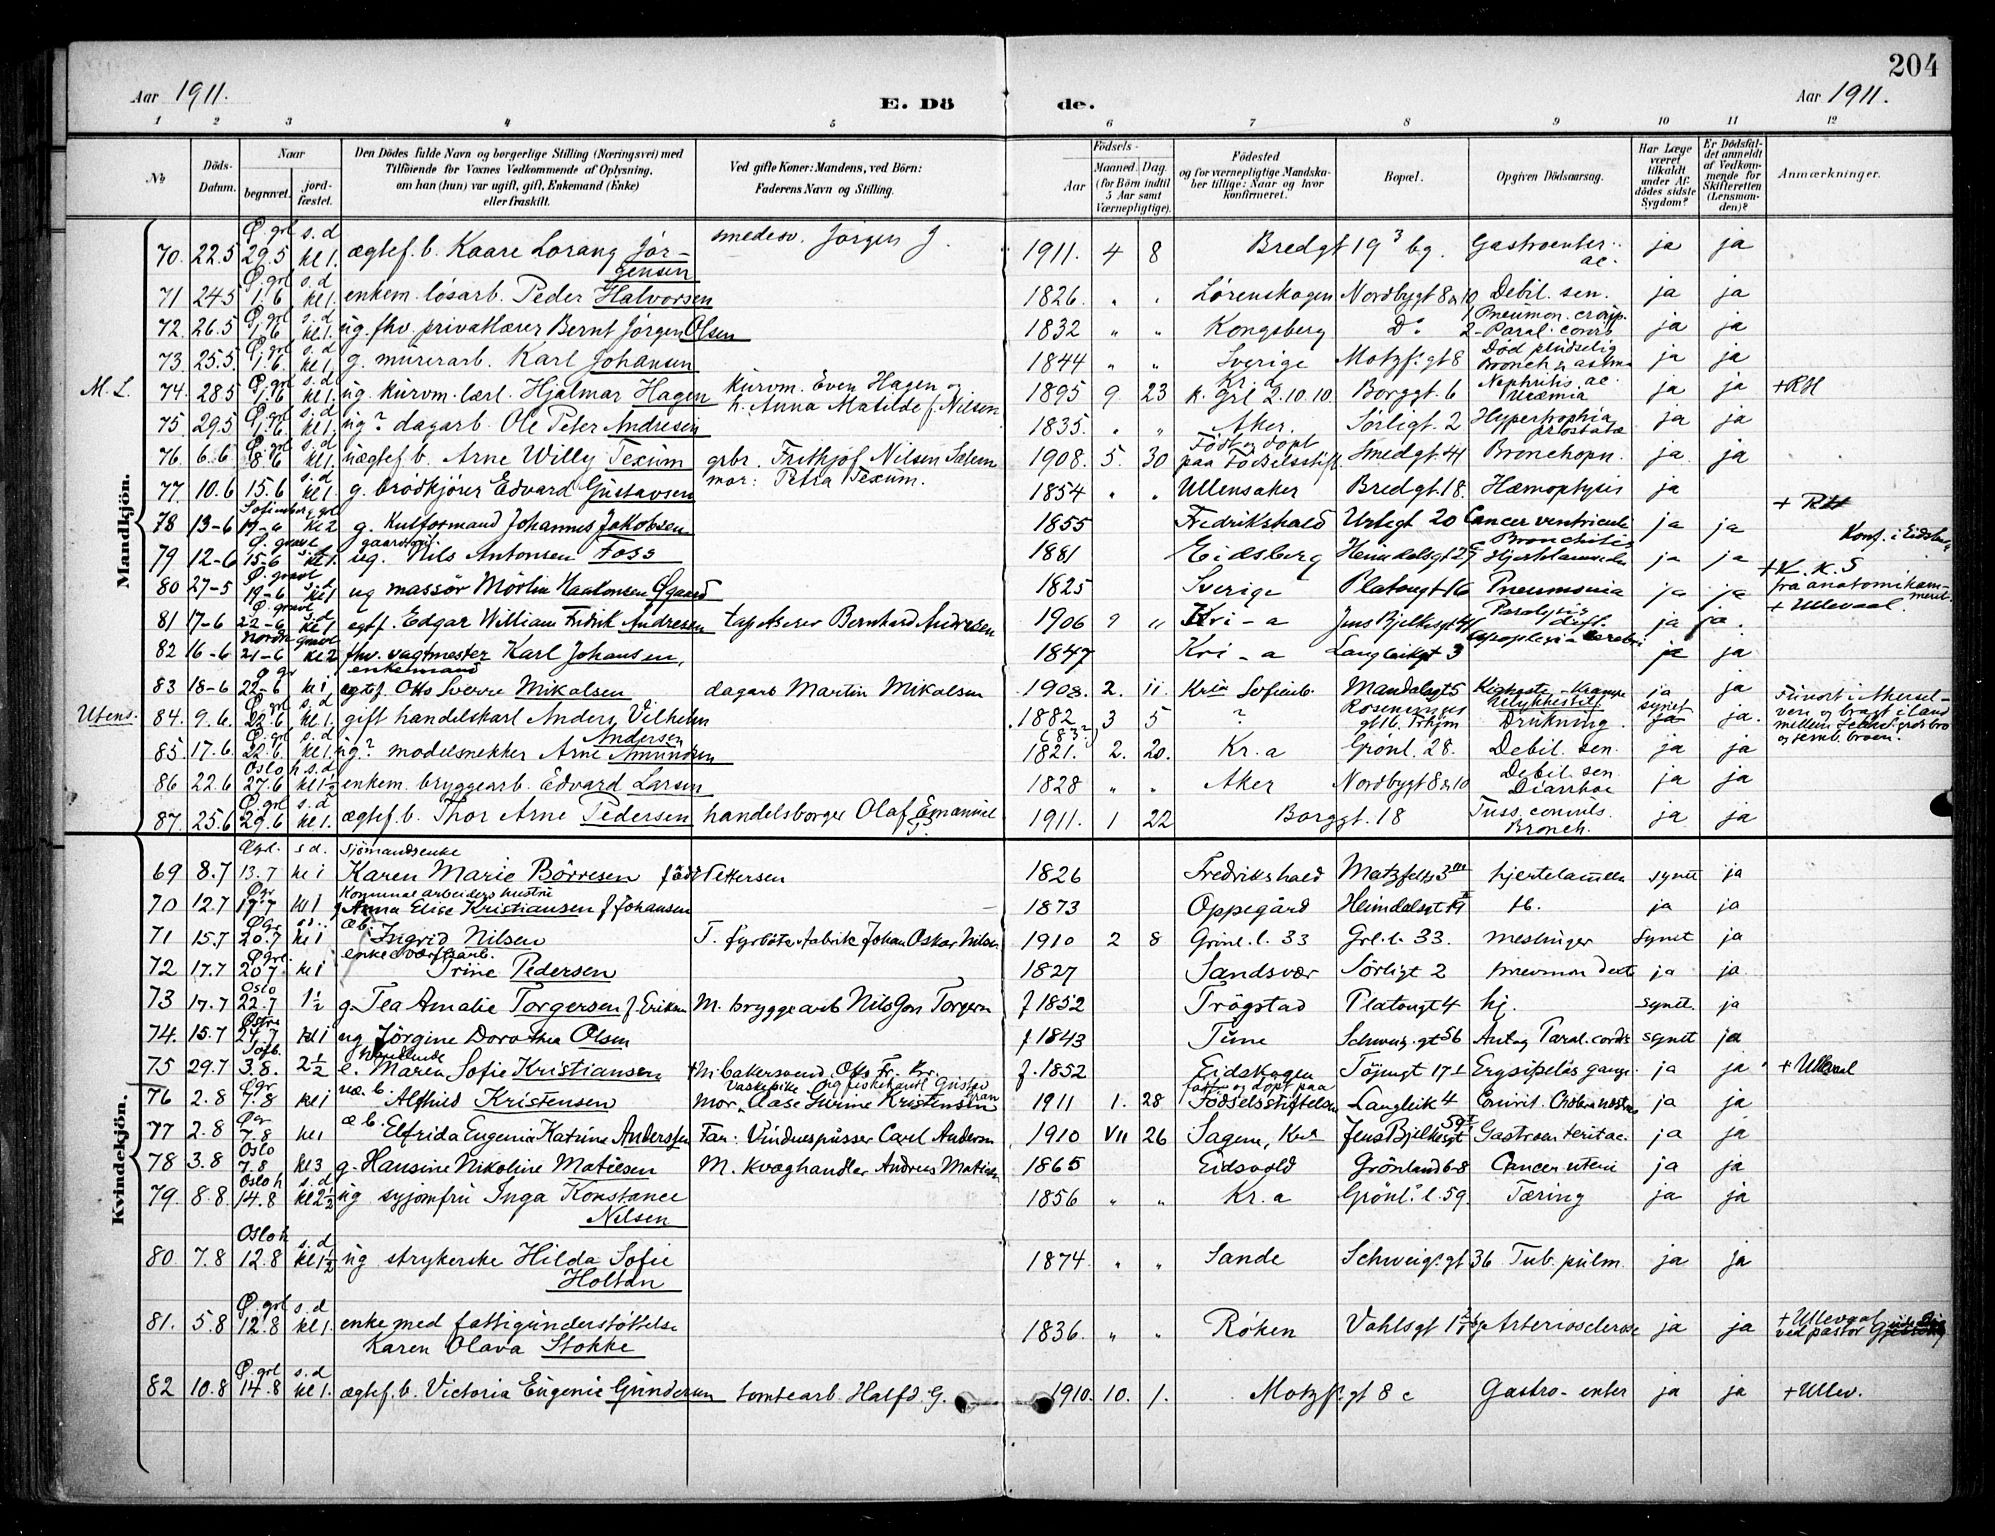 204
Aar 1911.
E. Dö de.
Aar 1911.
1 2 3 4 5 6 7 8 9 10 11 12
No
Döds-Datum.
Naar
begravet.
jord-fæstet.
Den Dödes fulde Navn og borgerlige Stilling (Næringsvei) med Tilföiende for Voxnes Vedkommende af Oplysning, om han (hun) var ugift, gift, Enkemand (Enke) eller fraskilt.
Ved gifte Koner: Mandens, ved Börn: Faderens Navn og Stilling.
Födsels-
Aar
Maaned.
Dag.
(for Börn indtil 5 Aar samt Værnepligtige).
Födested og for værnepligtige Mandskaber tillige: Naar og hvor konfirmeret.
Bopæl.
Opgiven Dödsaarsag.
Har Læge været tilkaldt under Afdödes sidste Sygdom?
Er Dödsfaldet anmeldt af Vedkommende for Skifteretten (Lensmanden)?
Anmærkninger.
Mandkjön.
70. 22.5 Ø. grl 29.5 s.d kl 1. ægtef. b. Kaare Lorang Jörgensen smedesv. Jörgen J. 1911. 4 8 Bredgt 19 3 bg. Gastroenter. ac. ja ja
71 24.5 Ø. grl 1.6 s.d kl 1. enkem. lösarb. Peder Halvorsen 1826. " " Lörenskogen Nordbygt 8 & 10 Debil. sen. ja ja
72. 26.5 Ø. grl 1.6 s.d kl 1. ug. fhv. privatlærer Bernt Jörgen Olsen 1832 " " Kongsberg Do 1 Pneumon. croup. 2 Paral. cordis ja ja
73. 25.5. Ø. grl 1.6. s.d kl 1. g. murerarb. Karl Johansen 1844 " " Sverige Motzf. gt 8 Död pludselig Bronch. & astma ja ja
M. L. 74. 28.5 Ø. grl 1.6 s.d kl 1. ug. kurvm. lærl. Hjalmar Hagen kurvm. Even Hagen og h. Anna Matilde f. Nilsen 1895 9. 23 Kr. a k. grl 2.10.10 Borggt. 6 Nephritis ac. Uræmia ja ja + RH
75. 29.5 Ø. grl 1.6 s.d kl 1. ug? dagarb. Ole Peter Andresen 1835. " " Aker. Sörligt. 2 Hypertrophia prostatæ ja ja
76. 6.6 Ø. grl 8.6 s.d kl 1. uægtef. b. Arne Willy Texum grbr. Frithjof Nilsen Sælem mor: Petra Texum. 1908. 5. 30 Födt og döpt paa Födselsstift. Smedgt. 41 Bronchopn. ja ja
77. 10.6 15.6 s.d kl 1 g. brödkjörer Edvard Gustavsen 1854 " " Ullensaker Bredgt. 18. Hæmoptysis ja
78 13-6 Sofienberg grl 19-6 kl 2 g. Kulformand Johannes Jakobsen 1855 Fredrikshald Urtegt 20 Cancer ventriculi ja ja + RH
79 12-6 Ø. gravl 15-6 s.d kl 1. gaardsbr. ug. Nils Antonsen Foss 1881 Eidsberg Heimdalsgt 27 Bronchitis Hjertelammelse ja ja Konf. i Eidsberg
80 27-5 Ø. gravl 19-6 s.d kl 1 ug massör Mörtin Haakonsen Øgaard 1825 Sverige Platougt 16 Pneumonia ja ja + K. K. S fra anatomikammeret.
81 17-6 Ø. gravl 22-6 s.d kl 1. egtf. Edgar William Fredrik Andresen tapetserer Bernhard Andresen 1906 9 " Kri-a Jens Bjelkesgt 41 Paralysis ja ja. + Ullevaal
82 16-6 Nordre gravl 21-6 kl 2 fhv. vagtmester Karl Johansen, enkemand 1847 Kri-a Langleikgt 3 Apoplexia cerebri ja ja
83 18-6 Ø gr 22-6 kl i, egtef. Otto Sverre Mikalsen dagarb Martin Mikalsen 1908. 2. 11. Kria Sofienb. Mandalsgt 5 Kighoste - Krampe ja ja
Utens. 84. 9.6. Ø. grl 22.6 s.d kl 1. gift handelskarl Anders Vilhelm Andersen 1882 (83?) 3 5 ? Rosenborggt 16. Trhjm Ulykkestilf. Drukning. synet ja ja. Funnet i Akerselven og bragt i land
85. 17.6. Ø. grl 22.6 s.d kl 1. ug? modelsnekker Arne Amundsen 1821. 2. 20. Kr. a Grönl. 28. Debil. sen. ja ja
86 22.6 Oslo h 27.6 s.d. kl 1½ enkem. bryggearb. Edvard Larsen 1828 " " Aker Nordbygt 8 & 10 Debil. sen Diarrhoe ja ja
87. 25.6 Ø. grl 29.6 s.d kl 1. ægtef. b. Thor Arne Pedersen handelsborger Olaf Emanuel P. 1911. 1 22 Borggt. 18 Tuss. convuls. Bronch. ja ja
Kvindekjön.
69 8.7 13.7 s.d. kl i sjömandsenke Karen Marie Börresen född Pettersen 1826 Fredrikshald Motzfeltsgt 3 hjertelamelse synet ja
70 12.7 Ø gr 17.7 kl 1 Kommunearbeiders hustru Anna Elise Kristiansen f Johansen 1873 Oppegård Heimdalsgt 19 tb. ja ja
71 15.7 Ø gr 20.7 kl i æ b. Ingrid Nilsen F. fyrböter fabrik Johan Oskar Nilsen 1910 2 8 Grönl. l. 33 Grl. l. 33. meslinger synet ja
72 17.7 Ø grl. 20.7. kl i enke verkstarb. Trine Pedersen 1827 Sandsvær Sörligt 2 pneumon dext ja ja
73 17.7 Oslo 22.7 1½ g. Tea Amalie Torgersen f. Eriksen M. bryggearb Nils Gon Torgersn f 1852 Trögstad Platougt 4 hj. synet. ja
74. 15.7 Østre 24.7 kl i ug Jörgine Dorothea Olsen f. 1843 Tune Schweig. gt 56 Antag Paral. cordis synet ja
75 29.7 Sofb. 3.8. 2½ handlende e. Maren Sofie Kristiansen M. bakersvend Otto Fr. Kr. f. 1852 Eidskogen Töyengt 17 Erysipelas gangr. ja ja + Ullevaal
76 2.8 Ø gr 7.8 kl i uæ b. Alfhild Kristensen mor. vaskepike Aase Gurine Kristensen 1911 1. 28 födt og döpt paa Födselsstiftelsen Langleik 4 ja ja
77 2.8 Ø gr 7.8 kl 1 æ b. Elfrida Eugenia Katrine Anderssen Far: Vinduespusser Carl Andersn 1910 VII 26 Sagene, Kra Jens Bjelkesgt 59 Gastroenterit ac. ja ja
78 3.8 Oslo 7.8 kl 3 g. Hansine Nikoline Matiesen M. kvæghandler Andreas Matiesen 1865 Eidsvold Grönland 6-8 Cancer uteri ja ja
79. 8.8. Oslo h 14.8 s.d kl 2½ ug syjomfru Inga Konstance Nilsen 1856 " " Kr. a Grönl. l. 59 Tæring ja ja
80 7.8 Oslo h 12.8 s.d kl 1½ ug strykerske Hilda Sofie Holtan 1874. " " Sande Schweig. gt 36 Tub. pulm. ja ja
81. 5.8 Ø. grl 12.8 s.d kl 1. enke med fattigunderstöttelse Karen Olava Stokke 1836. " " Röken Vahlsgt 1 Arteriosclerose ja ja + Ullevaal ved pastor
82 10.8 Ø. grl 14.8 s.d kl 1. ægtef. b. Victoria Eugenie Gundersen tomtearb. Halfd. G. 1910. 10. 1. Motzf. gt 8 c Gastro-enter ja ja + Ullev.